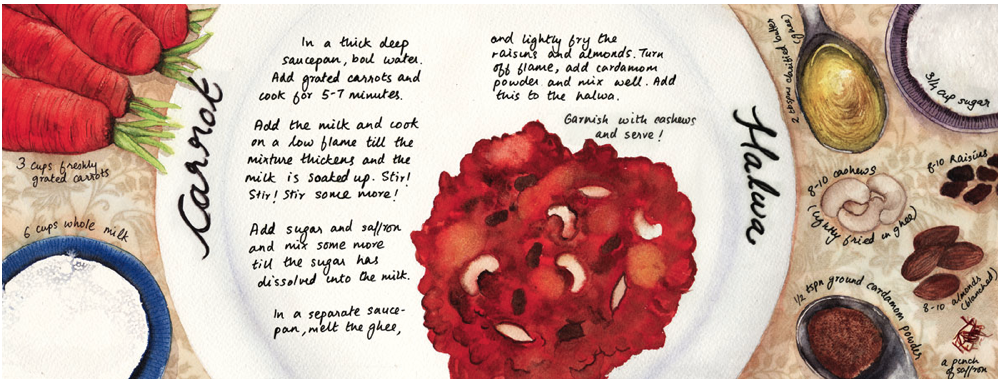 Carrot
Halwa
3 cups freshly
grated carrots
6 cups whole milk
In a thick deep
saucepan, boil water.
Add grated carrots and
cook for 5-7 minutes.
Add the milk and cook
on a low flame till the
mixture thickens and the
milk is soaked up. Stir!
Stir! Stir some more!
Add sugar and saffron
and mix some more
till the sugar has
dissolved into the milk.
In a separate sauce-
pan, melt the ghee,
and lightly fry the
raisins and almonds. Turn
off flame, add cardamom
powder and mix well. Add
this to the halwa.
Garnish with cashews
and serve!
2 tbspns clarified butter
(ghee)
3/4 cup sugar
8-10 cashews
(lightly fried in ghee)
8-10 Raisins
8-10 almonds
(blanched)
1/2 tspn ground cardamom powder
a pinch
of saffron